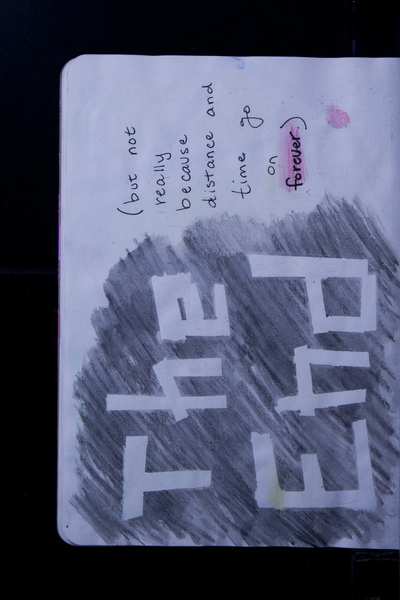 The
End
(but not
really
because
distance and
time go
on
forever.)